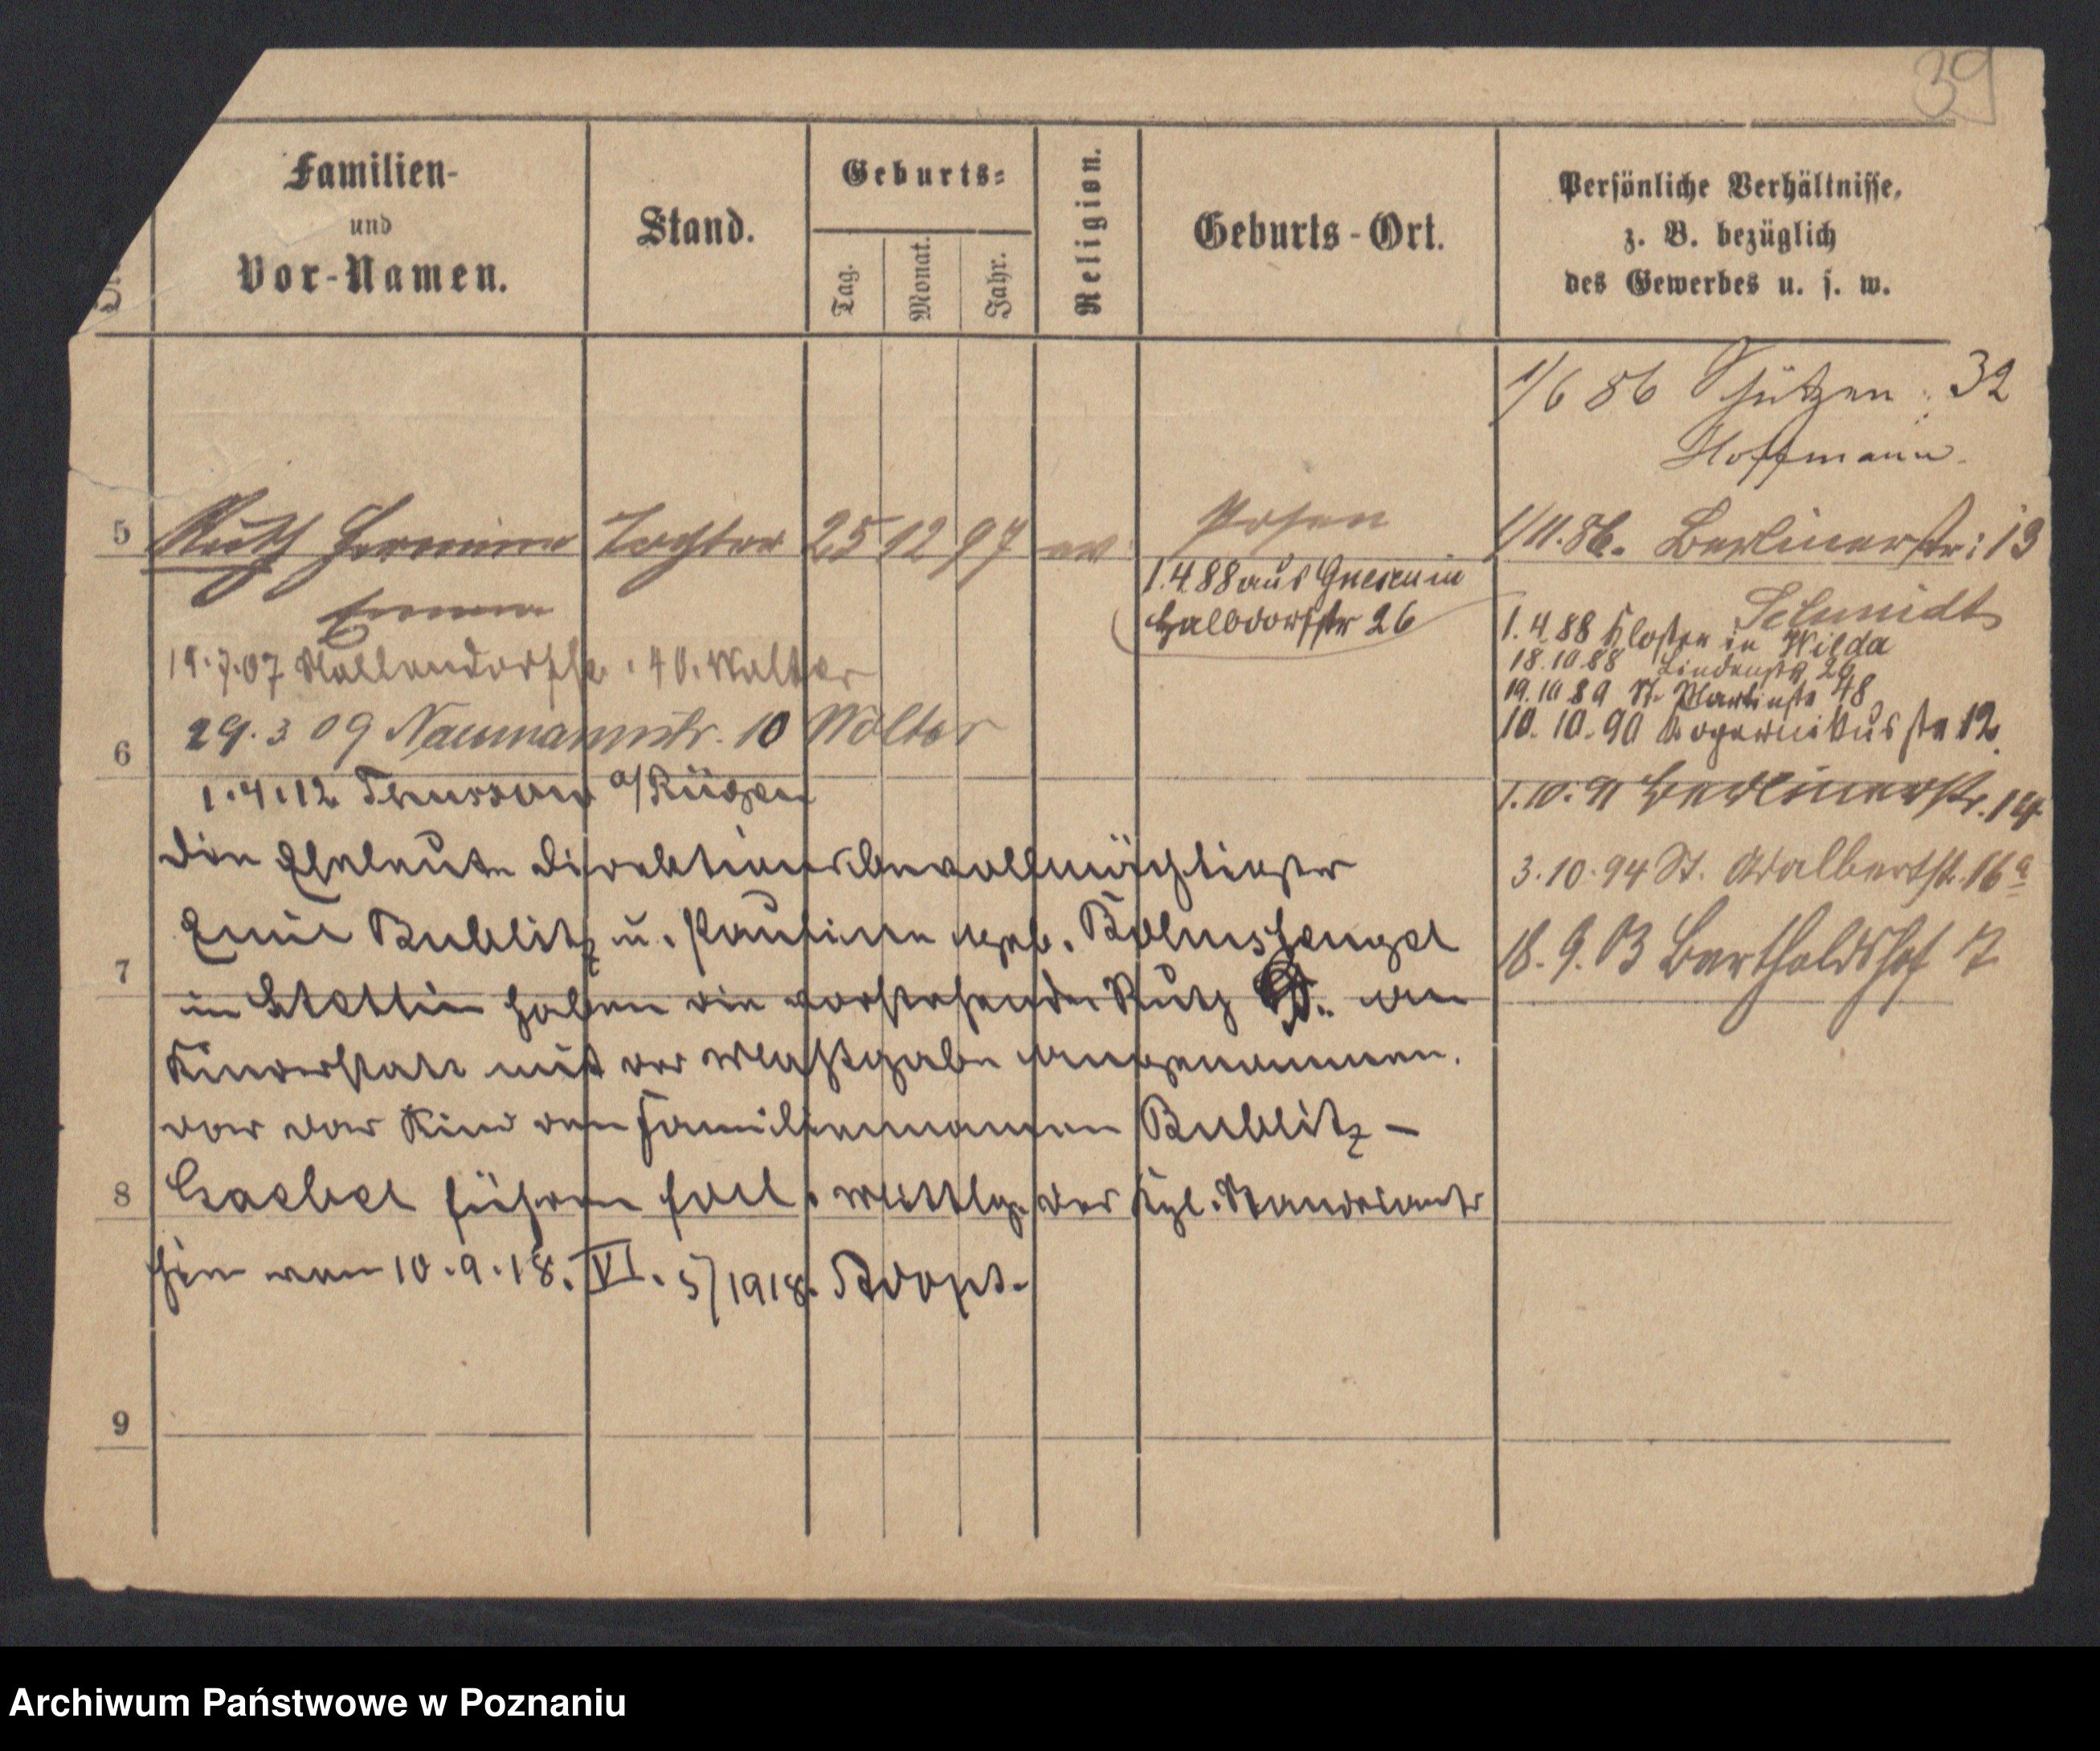 39
Familien-
und
Vor-Namen.
Stand.
Geburts-
Tag.
Monat.
Jahr.
Religion.
Geburts-Ort.
Persönliche Verhältnisse,
z. B. bezüglich
des Gewerbes u. s. w.
1/6 86 Schützen: 32
Hoffmann
5 Ruth Hermine Tochter 25 12 97 ev Posen
Emma
1/11.86. Berlinerstr: 13
Schmidt
1.4.88 aus Gnesen in
Halbdorfstr 26
1.4.88 Kloster in Wilda
18.10.88 Lindenstr 26
19.10 89 St. Martinstr 48
10.10.90 Kopernikusstr 12
1.10.91 Berlinerstr. 14
3.10.94 St. Adalbertstr. 16a
18.9.03 Bartholdshof 7
19.7.07 Hollendorfstr. 40. Walter
29.3 09 Naumannstr. 10 Wolter
6
1.4.12 a/Rügen
Die Eheleute Direktionsbevollmächtigter
Emil Bublitz u. Pauline geb.
7
in Stettin haben die vorstehende Ruth G. an
Kindesstatt mit der Maßgabe angenommen.
das das Kind den Familiennamen Bublitz –
8
Gaebel führen soll. Mittlg. des Kgl. Standesamts
hier vom 10.9.18. VI. 5/1918. Adopt.
9
Archiwum Państwowe w Poznaniu